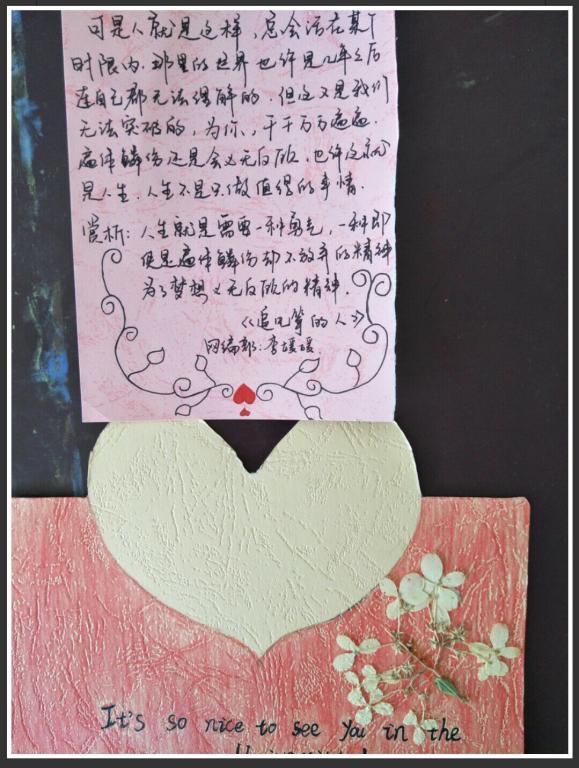 可是人就是这样，总会活在某个
时限内，那里的世界也许是几年之后
连自己都无法理解的。但这又是我们
无法突破的，为你，千千万万遍。
遍体鳞伤还是会义无反顾，也许这就
是人生，人生不是只做值得的事情。
赏析：人生就是需要一种勇气，一种即
便是遍体鳞伤却不放弃的精神
为了梦想义无反顾的精神。
《追风筝的人》
网编部：李媛媛
It's so nice to see you in the